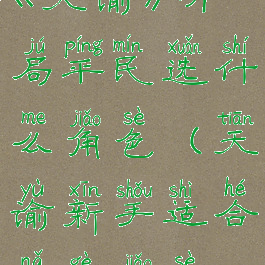 《天谕》听
jú píng mín xuǎn shí
局平民选什
me jiǎo sè tiān
么角色（天
yù xīn shǒu shì hé
谕新手适合
nǎ gè jiǎo sè